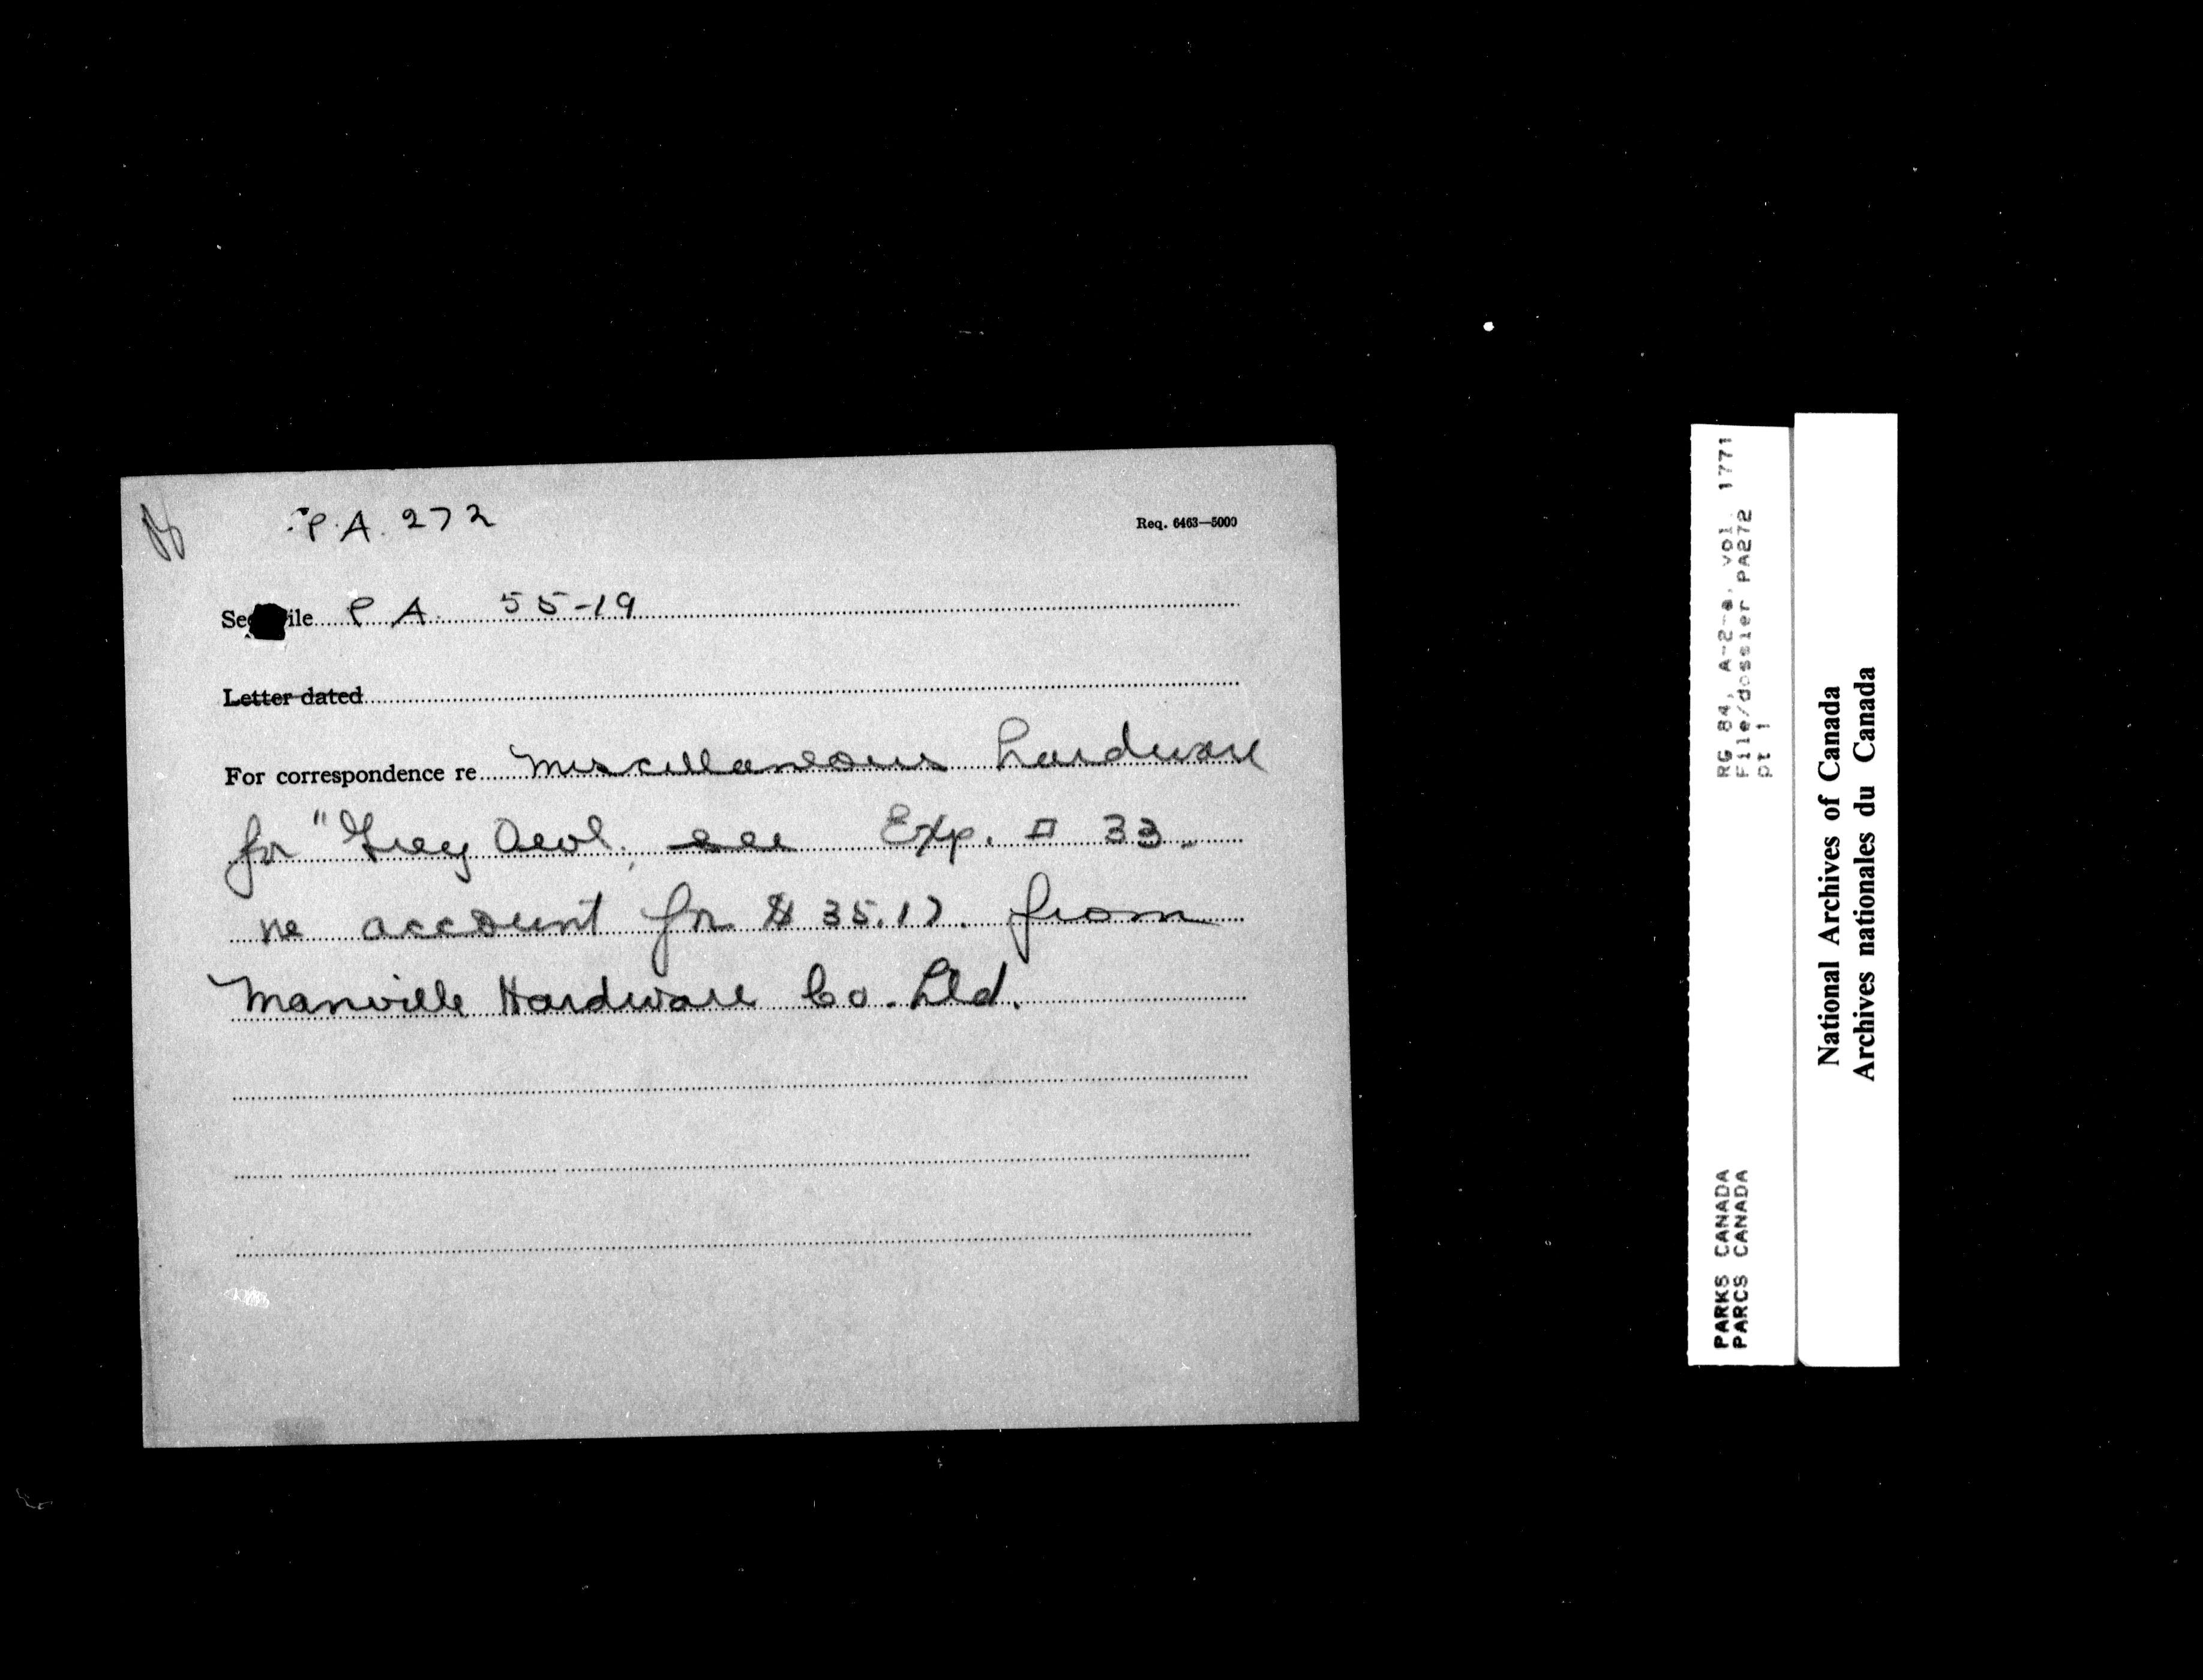 P.A. 272
Req. 6463—5000
See file P A. 55-19
Letter dated
For correspondence re Miscellaneous hardware
for "Grey Owl, see Exp. # 33.
re account for $ 35.17. from
Manville Hardware Co. Ltd.
RG 84, A-2-a, vol. 1771
File/dossier PA272
pt 1
PARKS CANADA
PARCS CANADA
National Archives of Canada
Archives nationales du Canada